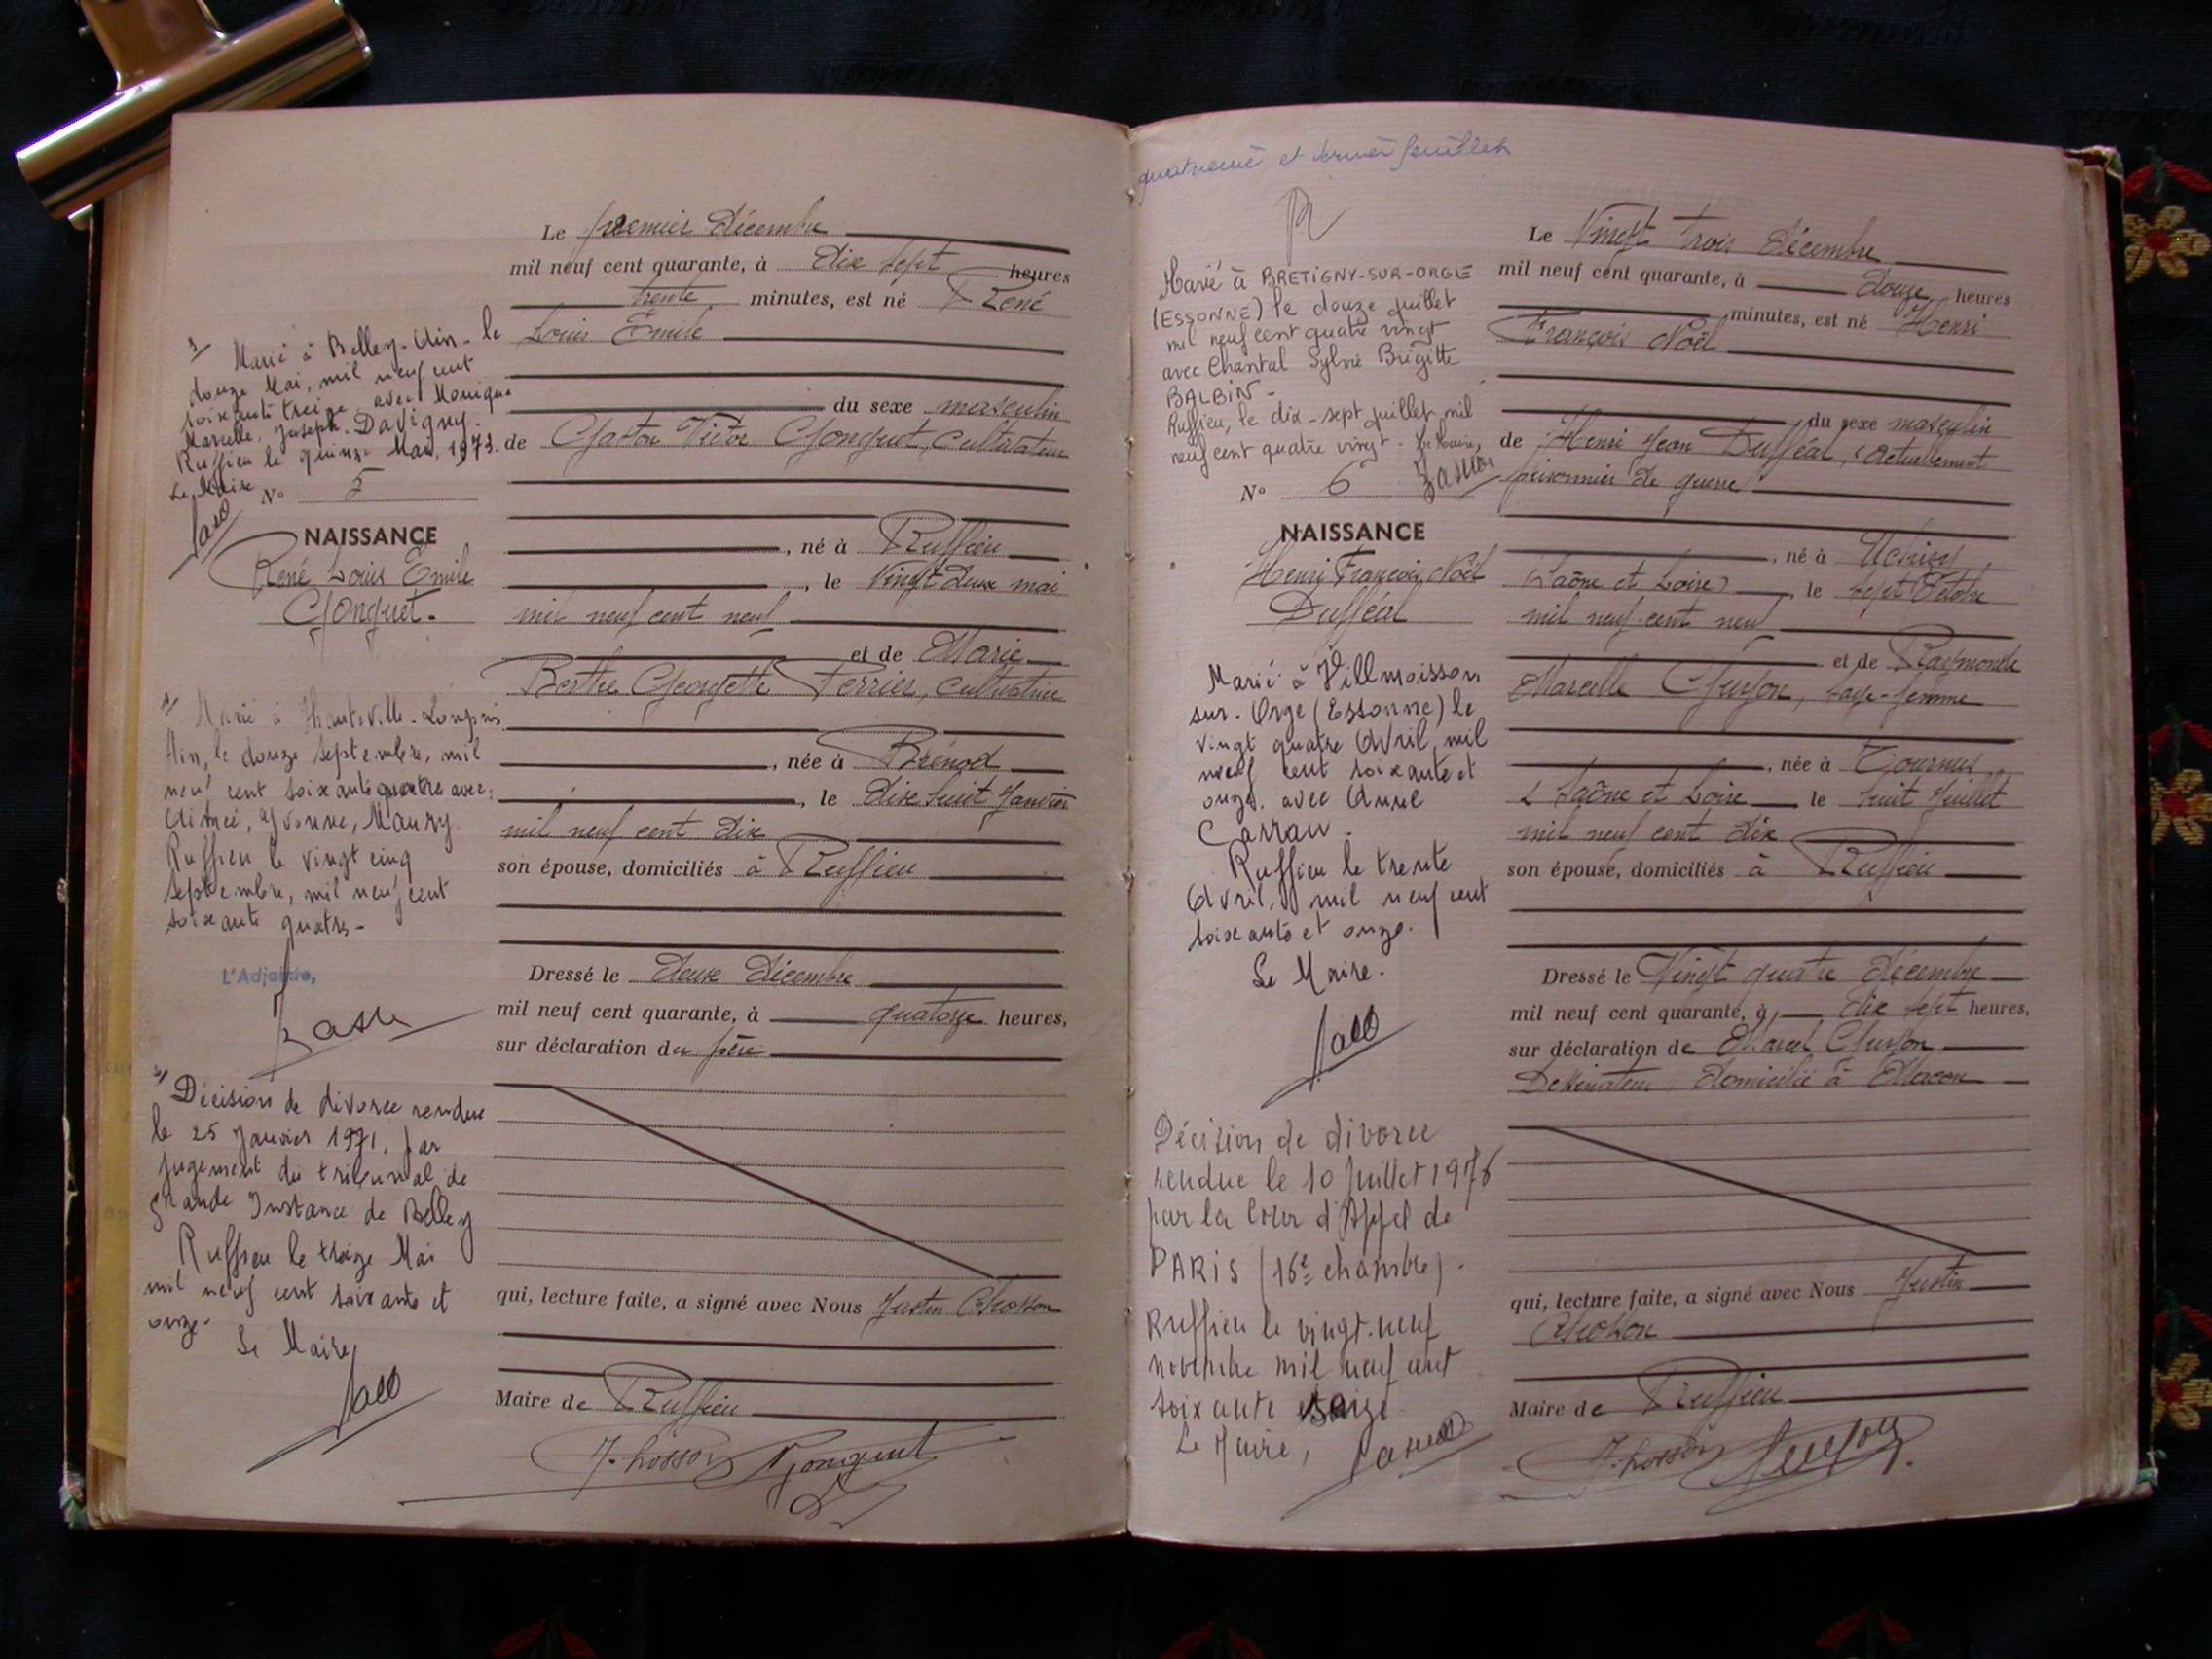 Le premier Décembre
mil neuf cent quarante, à dix sept heures
trente minutes, est né René
Louis Emile
du sexe masculin
de Gaston Victor Gonguet, cultivateur
, né à Ruffieu
, le vingt deux mai
mil neuf cent neuf
et de Marie
Berthe Georgette Ferrier, cultivatrice
, née à Brénod
, le dix huit Janvier
mil neuf cent dix
son épouse, domiciliés à Ruffieu
Dressé le deux Décembre
mil neuf cent quarante, à quatorze heures,
sur déclaration du père
qui, lecture faite, a signé avec Nous Justin Chosson
Maire de Ruffieu
J. Chosson Gonguet
3/ Marié à Belley-Ain- le
douze Mai, mil neuf cent
soixante treize avec Monique
Marcelle, Joseph. Davigny.
Ruffieu le quinze Mai, 1973.
Le Maire
N° 5
NAISSANCE
René Louis Emile
Gonguet.
1/ Marié à Hauteville-Lompnis
Ain, le douze septembre, mil
neuf cent soixante quatre avec:
Aimée, Yvonne, Maury
Ruffieu le vingt cinq
septembre, mil neuf cent
soixante quatre-
L'Adjoint,
2/ Décision de divorce rendue
le 25 Janvier 1971, par
jugement du tribunal de
grande Instance de Belley
Ruffieu le treize Mai
mil neuf cent soixante et
onze.
Le Maire
quatrieme et dernier feuillet
Le Vingt Trois Décembre
mil neuf cent quarante, à douze heures
minutes, est né Henri
François Noël
du sexe masculin
de Henri Jean Dufféal, actuellement
prisonnier de guerre
, né à Uchizy
(Saône et Loire) , le sept Octobre
mil neuf cent neuf
et de Raymonde
Marcelle Guyon, sage-femme
, née à Tournus
Saône et Loire le huit Juillet
mil neuf cent dix
son épouse, domiciliés à Ruffieu
Dressé le Vingt quatre Décembre
mil neuf cent quarante, à dix sept heures,
sur déclaration de Marcel Guyon
Dessinateur domicilié à Macon
qui, lecture faite, a signé avec Nous Justin
Chosson
Maire de Ruffieu
J. Chosson Guyon
Marié à BRETIGNY-SUR-ORGE
(ESSONNE) le douze juillet
mil neuf cent quatre vingt
avec Chantal Sylvie Brigitte
BALBIN -
Ruffieu, le dix-sept juillet mil
neuf cent quatre vingt - Le Maire,
N° 6
NAISSANCE
Henri François Noël
Dufféal
Marié à Villmoisson
sur-Orge (Essonne) le
vingt quatre Avril, mil
neuf cent soixante et
onze. avec Anne
Carrau.
Ruffieu le trente
Avril, mil neuf cent
soixante et onze.
Le Maire.
Décision de divorce
rendue le 10 Juillet 1976
par la Cour d'Appel de
PARIS (16e chambre).
Ruffieu le vingt-neuf
novembre mil neuf cent
soixante seize
Le Maire,